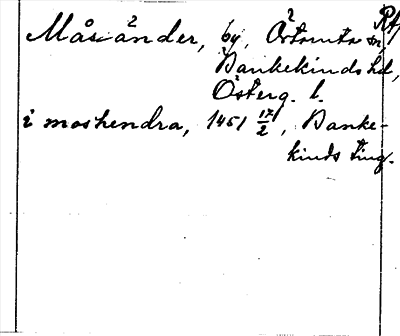 Rf,
Måsänder, by, Örtomta sn,
Bankekinds hd,
Österg. l.
i moshendra, 1451 17/2, Banke-
kinds ting.